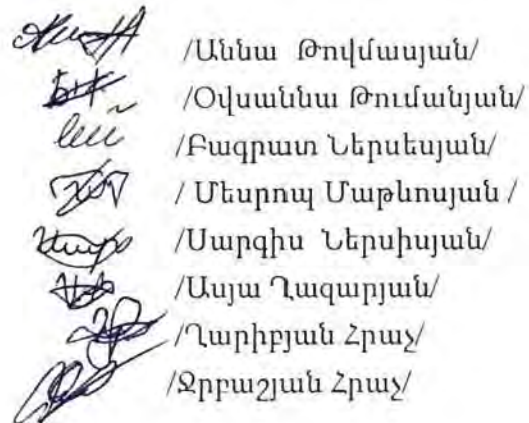 /Աննա Թովմասյան/
/Օվսաննա Թումանյան/
/Բագրատ Ներսեսյան/
/ Մեսրոպ Մաթևոսյան /
/Սարգիս Ներսիսյան/
/Ասյա Ղազարյան/
/Ղարիբյան Հրաչ/
/Ջրբաշյան Հրաչ/